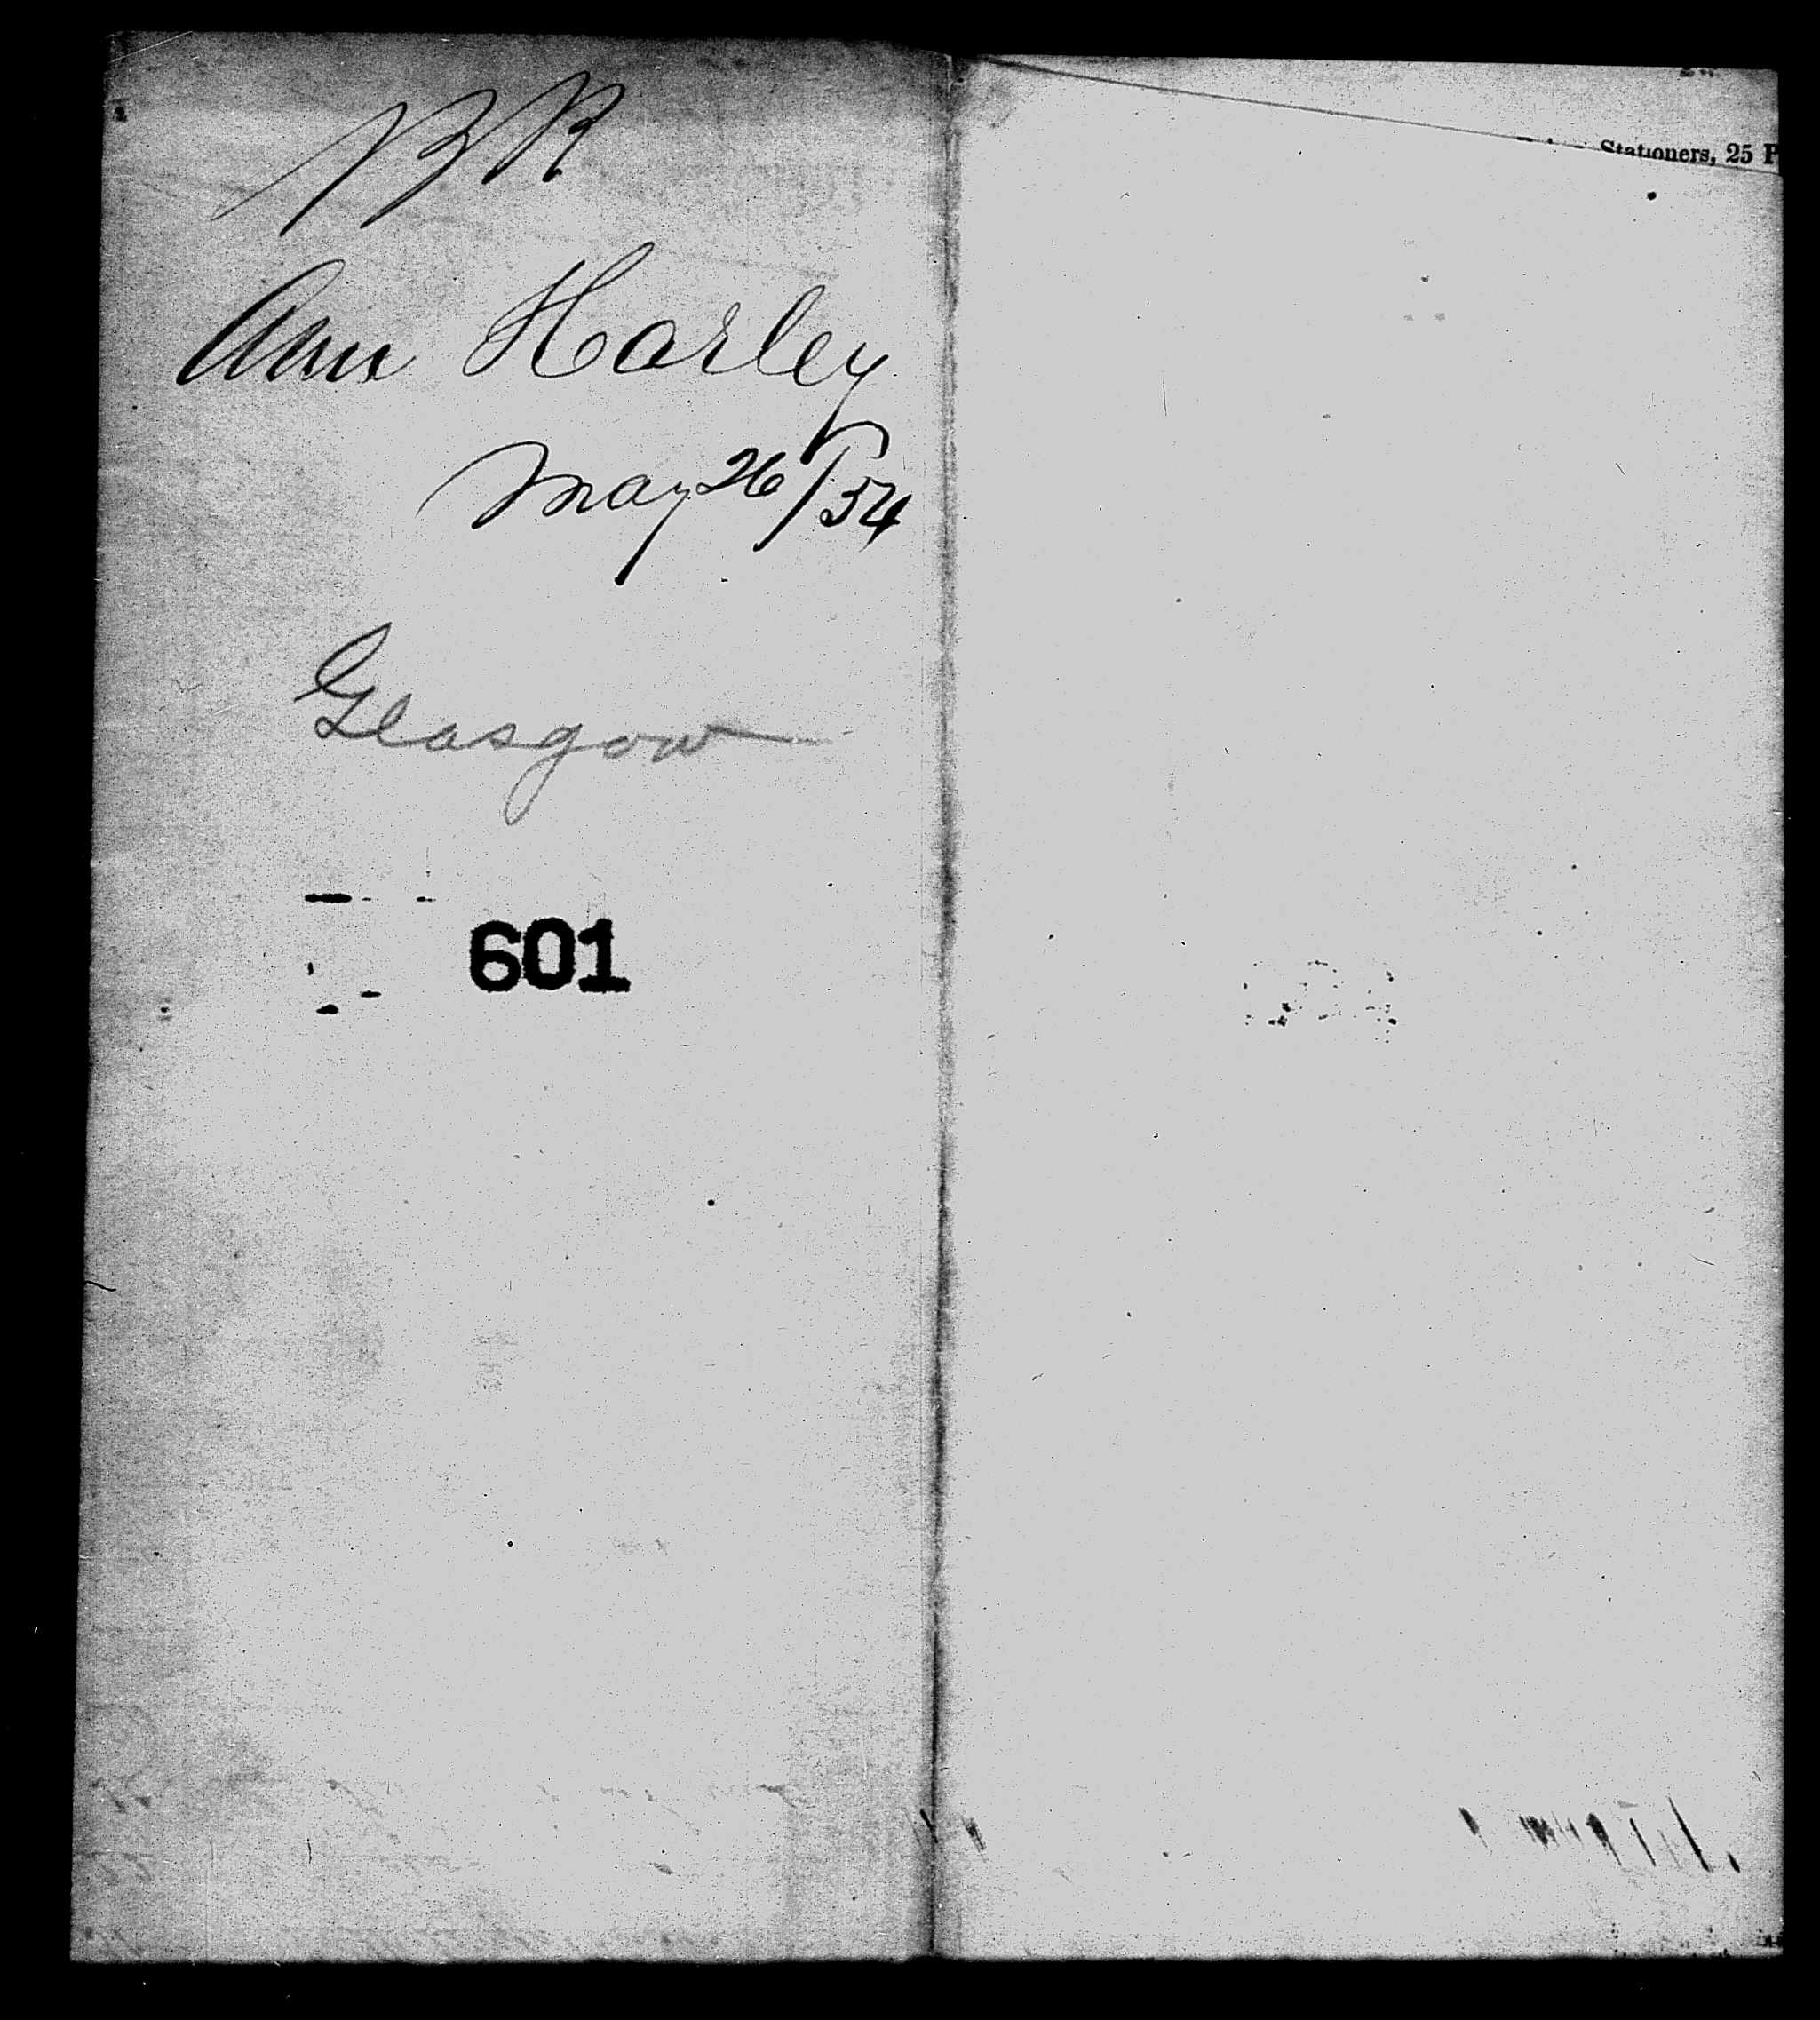 BR
Ann Harley
May 26/54
Glasgow
601
Stationers, 25 P